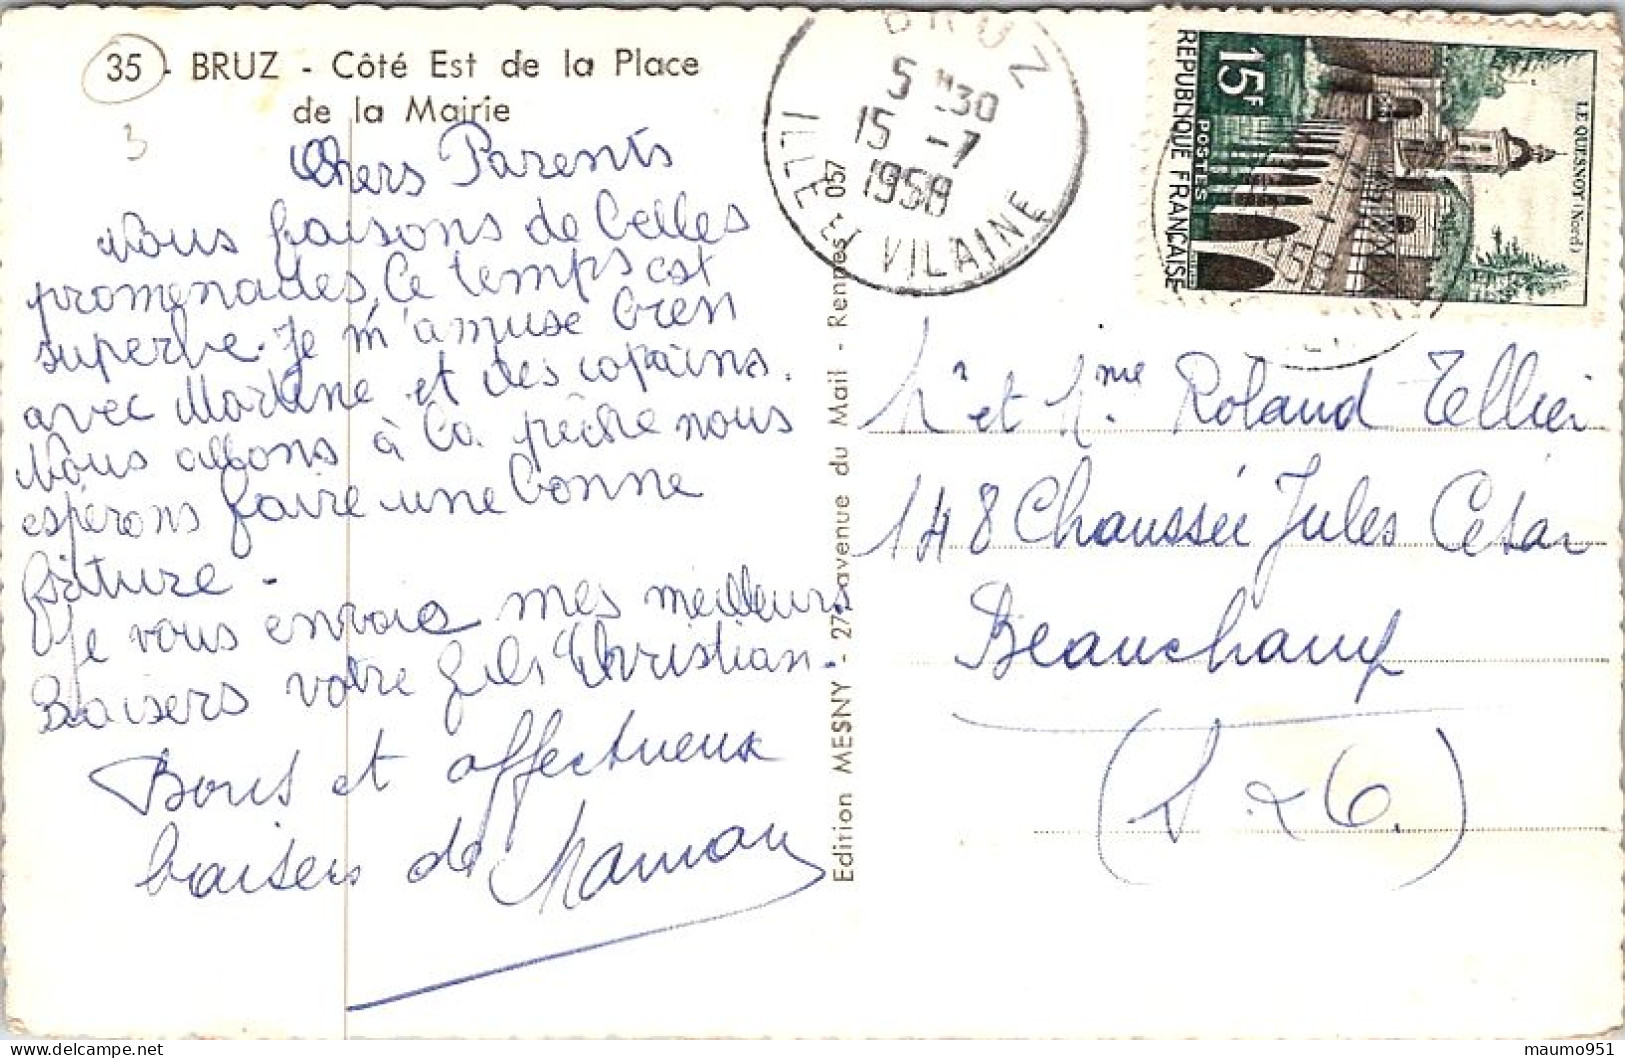 35 - BRUZ - Côté Est de la Place
de la Mairie
3
Chers Parents
Nous faisons de belles
promenades, le temps est
superbe. Je m'amuse bien
avec Martine et des copains.
Nous allons à la pêche nous
espérons faire une bonne
friture -
Je vous envoie mes meilleurs
Baisers votre fils Christian.
Bons et affectueux
baisers de Maman
Edition MESNY - 27, avenue du Mail - Rennes 057
BRUZ
5 H30
15 -7
1958
ILLE ET VILAINE
15F
POSTES
REPUBLIQUE FRANÇAISE
LE QUESNOY (Nord)
Mr et Mme Roland Tellier
148 Chaussée Jules César
Beauchamp
(S & O.)
maumo951